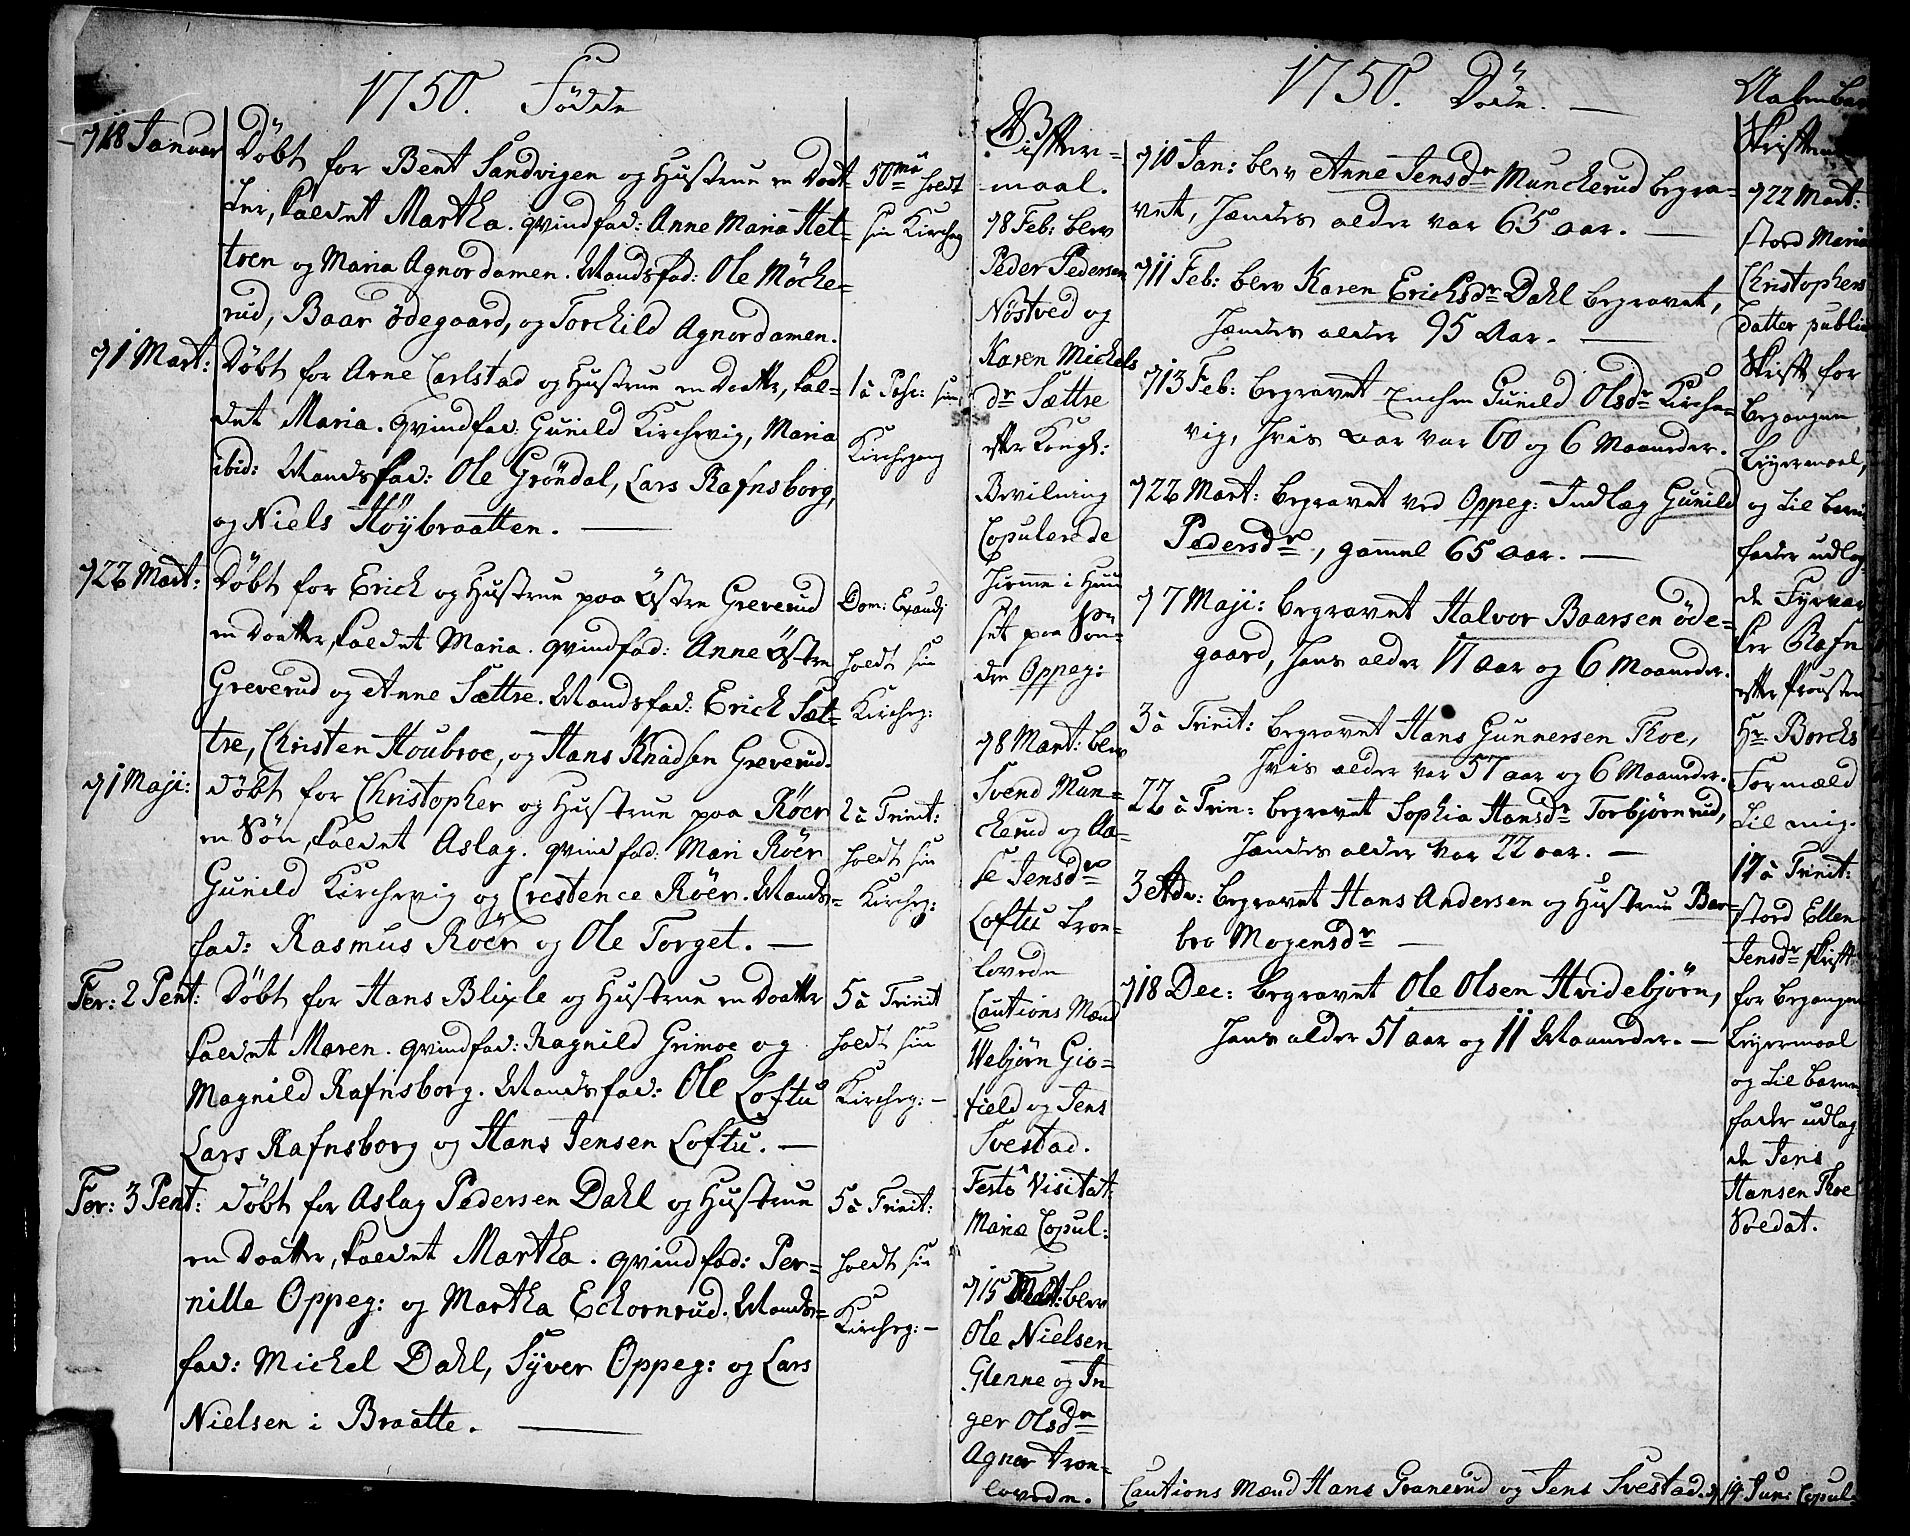 1750. Födde
d 18 Januar Döbt for Bent Sandvigen og Hustrue en Dat-
ter, kaldet Martha. qvindfad: Anne Maria Het-
tren og Maria Agnordamen. Mandsfad: Ole Möche-
rud, Baar Ödegaard, og Torchild Agnordamen.
50mæ holdt
sin Kircheg
d 1 Mart: Döbt for Arne Carlstad og Hustrue en Daatter, kal-
det Maria. qvindfad: Gunild Kirchevig, Maria
ibid: Mandsfad: Ole Gröndal, Lars Rafnsborg,
og Niels Höybraatten.
1 à Pasc: sin
Kirchegang
d 22 Mart: Döbt for Erich og Hustrue paa Östre Greverud
en Daatter, kaldet Maria. qvindfad: Anne Östre
Greverud og Anne Sættre. Mandsfad: Erich Sæt-
tre, Christen Houbroe, og Hans Knudsen Greverud.
Dom: Exaudi
holdt sin
Kircheg:
d 1 Maji: Döbt for Christopher og Hustrue paa Röer
en Sön, kaldet Aslag. qvindfad: Mari Röer
Gunild Kirchevig og Crestence Röer. Mands-
fad: Rasmus Röer og Ole Torget.
2 à Trinit:
holdt sin
Kircheg:
Fer: 2 Pent: Döbt for Hans Blixle og Hustrue en Daatter
kaldet Maren. qvindfad: Ragnild Grimoe og
Magnild Rafnsborg. Mandsfad: Ole Loftu
Lars Rafnsborg og Hans Jensen Loftu.
5 à Trinit
holdt sin
Kircheg:
Fer: 3 Pent: Döbt for Aslag Pedersen Dahl og Hustrue
en Daatter, kaldet Martha. qvindfad: Per-
nille Oppeg: og Martha Eckornrud. Mands-
fad: Michel Dahl, Syver Oppeg: og Lars
Nielsen i Braatte.
5 à Trinit:
holdt sin
Kircheg:
Gifter-
maal.
d 8 Feb: blev
Peder Pedersen
Nöstved og
Karen Michels
dr Sættre
efter Kongl:
Bevilning
Copulerede
hiemme i Huu
set paa Sön-
dre Oppeg:
d 8 Mart: blev
Svend Mun-
cherud og Aa-
se Jensdr
Loftu troe-
lovede
Cautions Mænd
Webjörn Gio-
field og Jens
Svestad.
Festo Visitat:
Mariæ Copul:
d 15 Mart: blev
Ole Nielsen
Glenne og In-
ger Olsdr
Agnor troe-
lovede.
1750. Döde.
d 10 Jan: blev Anne Jensdr Muncherud begra-
vet, hændes alder var 65 aar.
d 11 Feb: blev Karen Erichsdr Dahl begravet,
hændes alder 95 aar.
d 13 Feb: begravet Enchen Gunild Olsdr Kirche-
vig, hvis aar var 60 og 6 Maaneder.
d 22 Mart: begravet ved Oppeg: Indlæg Gunild
Pedersdr, gammel 65 aar.
d 7 Maji: begravet Halvor Baarsen Öde-
gaard, hans alder 17 aar og 6 Maaneder.
3 à Trinit: begravet Hans Gunnersen Thoe,
hvis alder var 57 aar og 6 Maaneder.
22 à Trin: begravet Sophia Hansdr Torbjörnrud,
hændes alder var 22 aar.
3 Adv: begravet Hans Andersen og Hustrue Bar-
bro Mogensdr
d 18 Dec: begravet Ole Olsen Hvidebjörn,
hans alder 51 aar og 11 Maaneder.
Cautions Mænd Hans Granerud og Jens Svestad. d 19 Jun: Copul:
d 22 Mart:
stod Maria
Christophers
datter publi
Skrift for
begangen
Leyermaal,
og til barne
fader udlag-
de Fyrvar
ker Rafn
efter Prousten
Hr Borchs
Formæld
til mig.
17 à Trinit:
stod Ellen
Jensdr skrift
for begangen
Leyermaal
og til barne
fader udlag
de Jens
Hansen Thoe
Soldat.